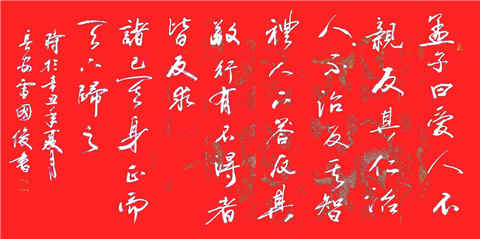 孟子曰愛人不
親反其仁治
人不治反其智
禮人不答反其
敬行有不得者
皆反求
諸己其身正而
天下歸之
時於辛丑年夏月
長安雷國俊書